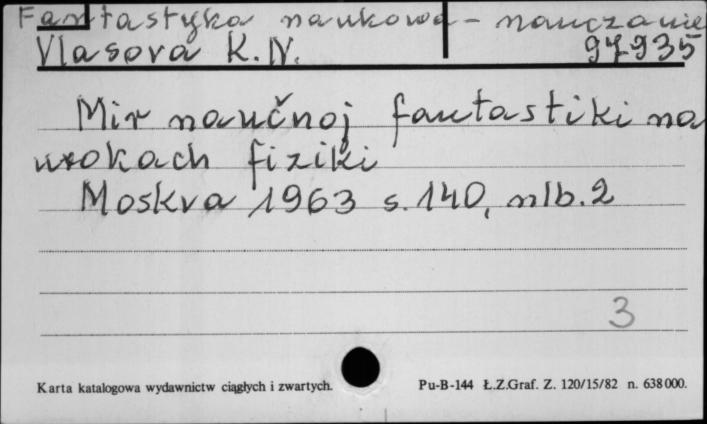 Fantastyka naukowa - nauczanie
Vlasova K.N. 97935
Mir naučnoj fantastiki na
urokach fiziki
Moskva 1963 s. 140, nlb. 2
3
Karta katalogowa wydawnictw ciągłych i zwartych. Pu-B-144 Ł.Z.Graf. Z. 120/15/82 n. 638000.